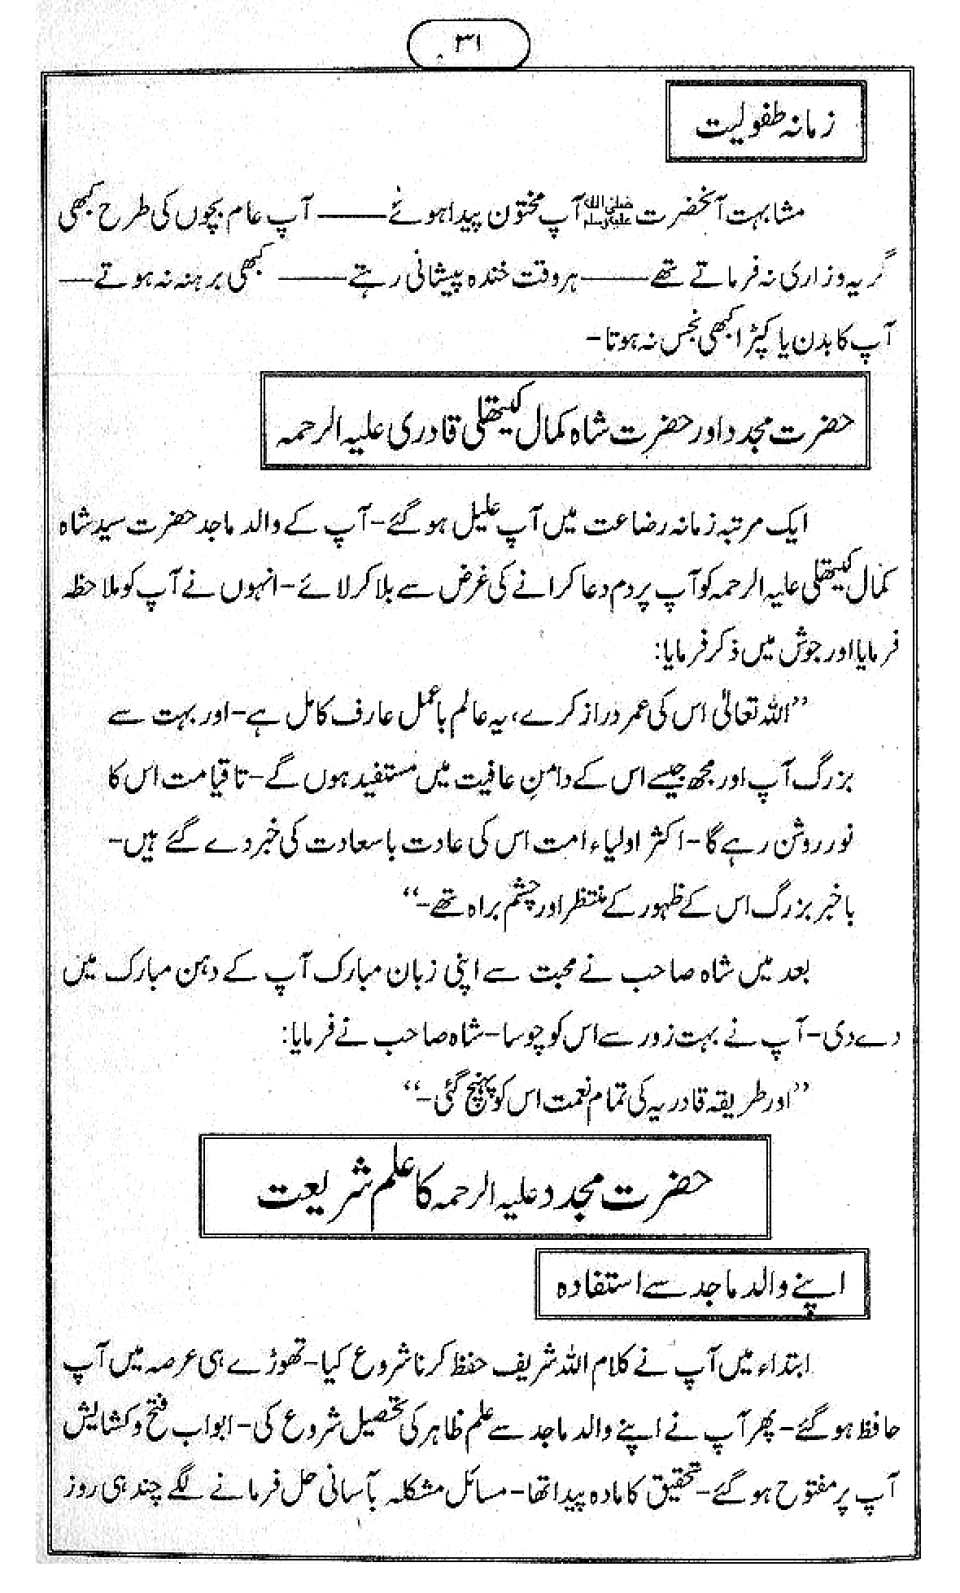 ۳۱
زمانہ طفولیت
مشابہت آنحضرت ﷺ آپ مختون پیدا ہوئے —— آپ عام بچوں کی طرح کبھی
گریہ وزاری نہ فرماتے تھے —— ہر وقت خندہ پیشانی رہتے —— کبھی برہنہ نہ ہوتے —
آپ کا بدن یا کپڑا کبھی نجس نہ ہوتا-
حضرت مجدد اور حضرت شاہ کمال کیتھلی قادری علیہ الرحمہ
ایک مرتبہ زمانہ رضاعت میں آپ علیل ہو گئے- آپ کے والد ماجد حضرت سید شاہ
کمال کیتھلی علیہ الرحمہ کو آپ پر دم دعا کرانے کی غرض سے بلا کر لائے- انہوں نے آپ کو ملاحظہ
فرمایا اور جوش میں ذکر فرمایا:
”اللہ تعالیٰ اس کی عمر دراز کرے، یہ عالم باعمل عارف کامل ہے- اور بہت سے
بزرگ آپ اور مجھ جیسے اس کے دامنِ عافیت میں مستفید ہوں گے- تا قیامت اس کا
نور روشن رہے گا- اکثر اولیاء امت اس کی عادت باسعادت کی خبر دے گئے ہیں-
باخبر بزرگ اس کے ظہور کے منتظر اور چشم براہ تھے-“
بعد میں شاہ صاحب نے محبت سے اپنی زبان مبارک آپ کے دہن مبارک میں
دے دی- آپ نے بہت زور سے اس کو چوسا- شاہ صاحب نے فرمایا:
”اور طریقہ قادریہ کی تمام نعمت اس کو پہنچ گئی-“
حضرت مجدد علیہ الرحمہ کا علم شریعت
اپنے والد ماجد سے استفادہ
ابتداء میں آپ نے کلام اللہ شریف حفظ کرنا شروع کیا- تھوڑے ہی عرصہ میں آپ
حافظ ہو گئے- پھر آپ نے اپنے والد ماجد سے علم ظاہر کی تحصیل شروع کی- ابواب فتح و کشایش
آپ پر مفتوح ہو گئے- تحقیق کا مادہ پیدا تھا- مسائل مشکلہ بآسانی حل فرمانے لگے چند ہی روز